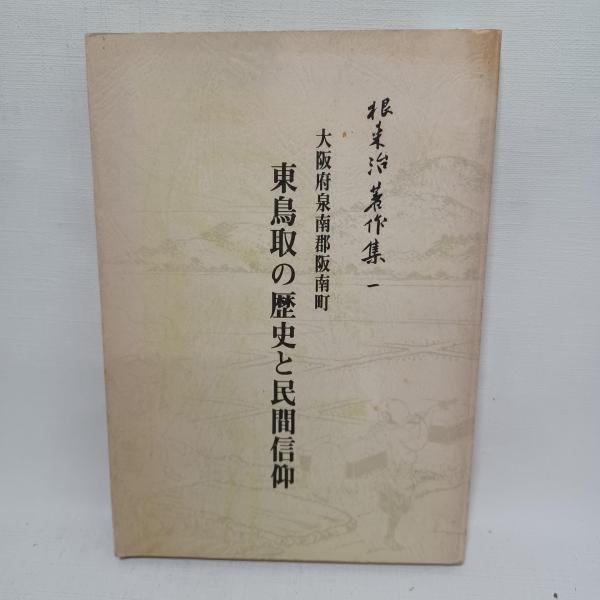 根来治著作集一
大阪府泉南郡阪南町
東鳥取の歴史と民間信仰